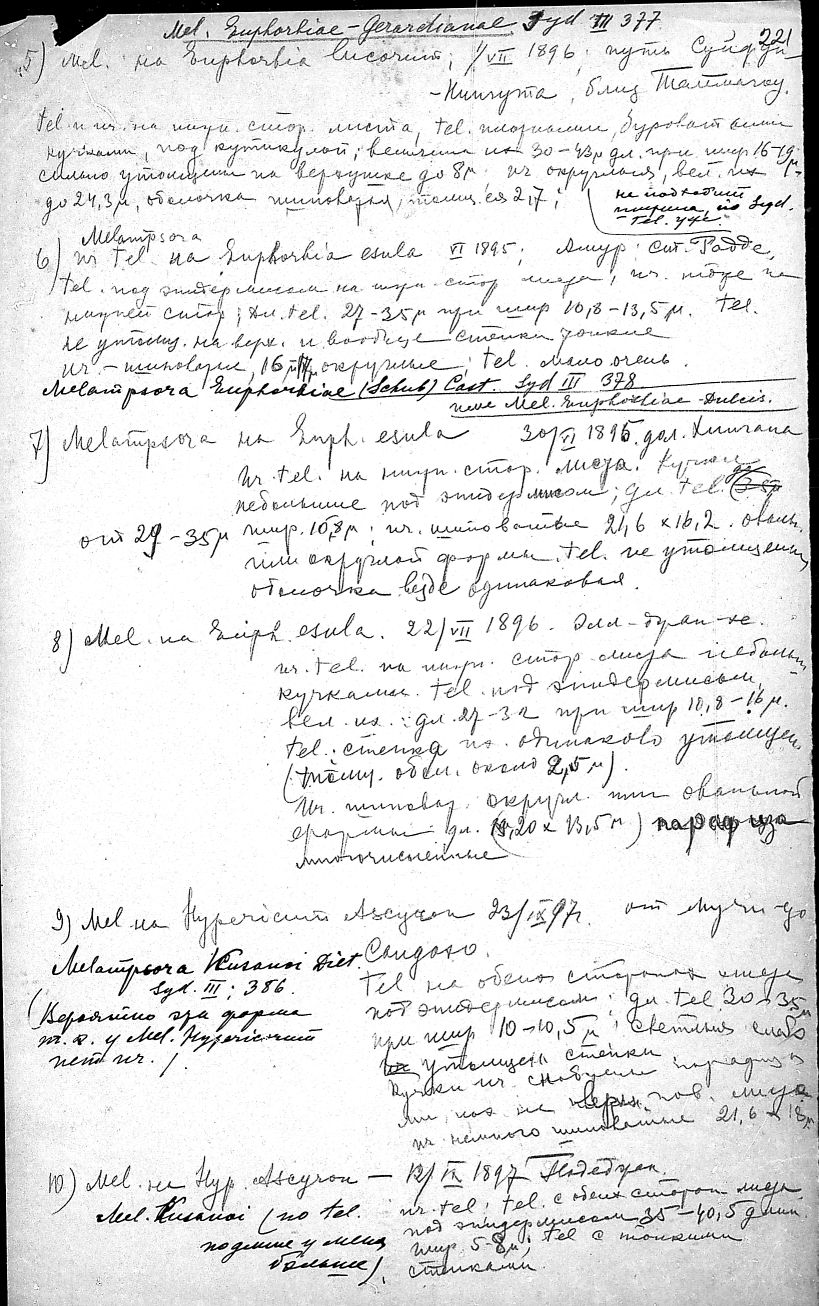 221
Mel. Euphorbiae-Gerardianae Syd III 377
5) Mel. на Euphorbia lucorum; 1/VII 1896; путь
близ
tel. и ur. на нижн. стор. листа, tel. плоскими, буроватыми
кучками, под кутикулой; величина их 30-43μ дл. при шир 16-19μ
сильно утолщены на верхушке до 8μ. ur. округлые, вел. их
до 24,3μ, оболочка шиповатая, толщ. ея 2,7;
не подходит
ширина, по Syd.
tel. уже
Melampsora
6) ur. tel. на Euphorbia esula VI 1895; Амур: ст. Радде,
tel. под эпидермисом на нижн. стор. листа, ur. тоже на
нижней стор; Дл. tel. 27-35μ при шир 10,8-13,5μ. tel.
не утолщ. на верх. и вообще стенки тонкие
ur. - шиповатые, 16μ округлые; tel. мало очень.
Melampsora Euphorbiae (Schub) Cast. Syd III 378
или Mel. Euphorbiae-Dulcis.
7) Melampsora на Euph. esula 30/VI 1895. дол. Хингана
ur. tel. на нижн. стор. листа. Кучки
небольшие под эпидермисом; дл. tel.
от 29-35μ шир. 10,8μ; ur. шиповатые 21,6 x 16,2. овальн.
или округлой формы. tel. не утолщены,
оболочка везде одинаковая.
8) Mel. на Euph. esula. 22/VII 1896.
ur. tel. на нижн. стор. листа небольш.
кучками. tel. под эпидермисом,
вел. их: дл. 27-32 при шир 10,8-16μ.
tel. стенка их одинаково утолщен.
(толщ. обол. около 2,5μ).
Ur. шиповат. округл. или овальной
формы дл. 20 x 13,5μ) парафиза
многочисленные
9) Mel на Hypericum Ascyron 23/IX 97г. от
Melampsora Kusanoi Diet.
Syd. III; 386.
(Вероятно эта форма
т. к. у Mel. Hypericorum
нет ur. )
tel на обеих сторонах листа
под эпидермисом; дл. tel 30-35μ
при шир 10-10,5μ; слабо
утолщена стенки
кучки ur. снабжены парафиза
ми, на верхн. пов. листа
ur. немного шиповатые 21,6 x 18μ
10) Mel. на Hyp. Ascyron — 12/IX 1897
Mel. Kusanoi (но tel.
подлинее у меня
больше),
ur. tel; tel. с обеих сторон листа
под эпидермисом 35-40,5 длин.
шир 5-8μ; tel с тонкими
стенками.